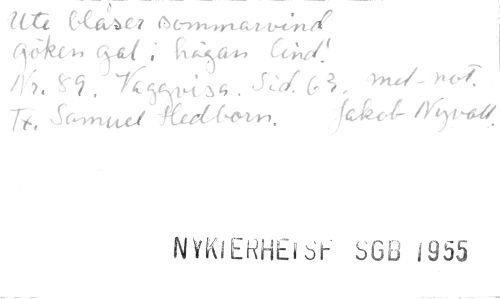 Ute blåser sommarvind
göken gal i högan lind!
Nr. 89. Vaggvisa. Sid. 63. mel-not.
Tx. Samuel Hedborn. Jakob Nyvall.
NYKTERHETSF SGB 1955